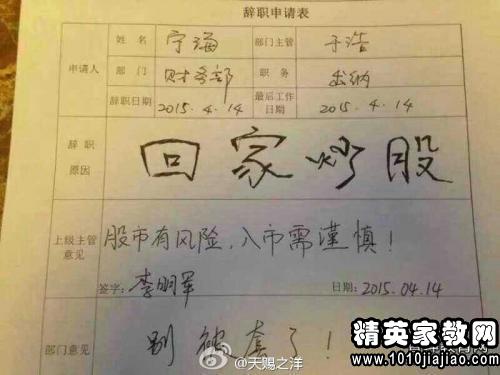 辞职申请表
申请人 姓 名 宁海 部门主管 于浩
部 门 财务部 职 务 出纳
辞职日期 2015.4.14 最后工作日期 2015.4.14
辞 职 原因 回家炒股
上级主管意见 股市有风险，入市需谨慎！
签字：李明军 日期：2015.04.14
部门意见 别被套了！
@天赐之洋
精英家教网
www.1010jiajiao.com